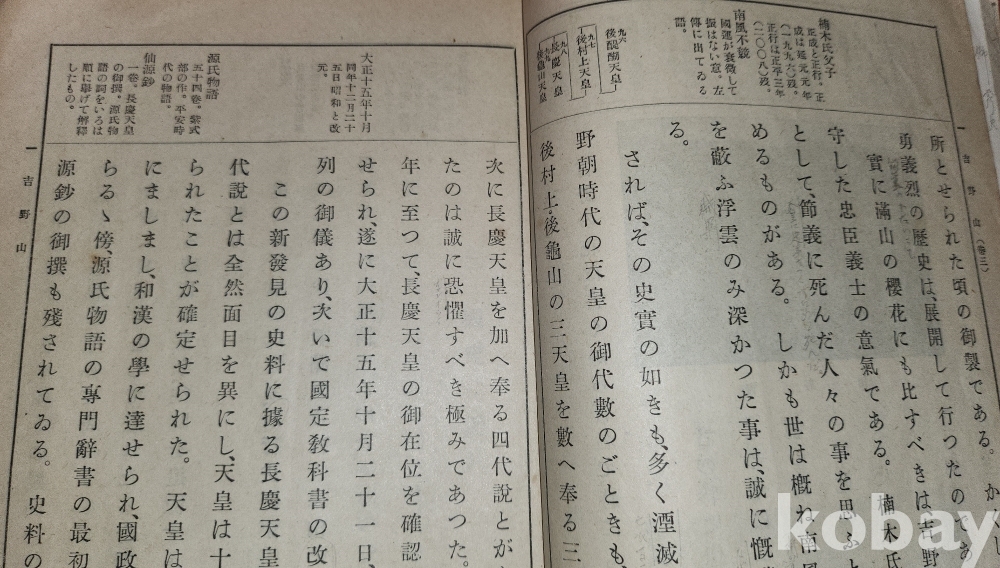 吉野山(卷三)
所とせられた頃の御製である。かゝ
勇義烈の歷史は、展開して行つたのであ
實に滿山の櫻花にも比すべきは吉野
守した忠臣義士の意氣である。楠木氏
として、節義に死んだ人々の事を思ふと
めるものがある。しかも世は槪ね南風
を蔽ふ浮雲のみ深かつた事は、誠に慨
る。
されば、その史實の如きも、多く湮滅
野朝時代の天皇の御代數のごときも、
後村上・後龜山の三天皇を數へ奉る三
楠木氏父子
正成と正行。正
成は延元元年
(一九九六)歿。
正行は正平三年
(二〇〇八)歿。
南風不競
國運が衰微して
振はない意。左
傳に出てゐる
語。
九六
後醍醐天皇
九七
後村上天皇
九八
長慶天皇
九九
後龜山天皇
次に長慶天皇を加へ奉る四代說とが
たのは誠に恐懼すべき極みであつた。
年に至つて、長慶天皇の御在位を確認
せられ、遂に大正十五年十月二十一日、
列の御儀あり、次いで國定敎科書の改
この新發見の史料に據る長慶天皇
代說とは全然面目を異にし、天皇は十
られたことが確定せられた。天皇は
にましまし、和漢の學に達せられ、國政
らるゝ傍、源氏物語の專門辭書の最初
源鈔の御撰も殘されてゐる。史料の
大正十五年十月
同年十二月二十
五日昭和と改
元。
源氏物語
五十四卷。紫式
部の作。平安時
代の物語。
仙源鈔
一卷。長慶天皇
の御撰。源氏物
語の詞をいろは
順に擧げて解釋
したもの。
一 吉野山
kobay